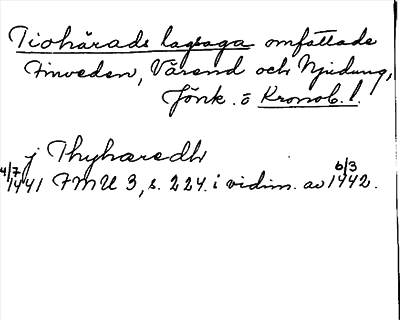 Tiohärads lagsaga omfattade
Finveden, Värend och Njudung,
Jönk. o Kronob. l.
j Thyharedh
4/7 1441 FMU 3, s. 224. i vidim. av 6/3 1442.